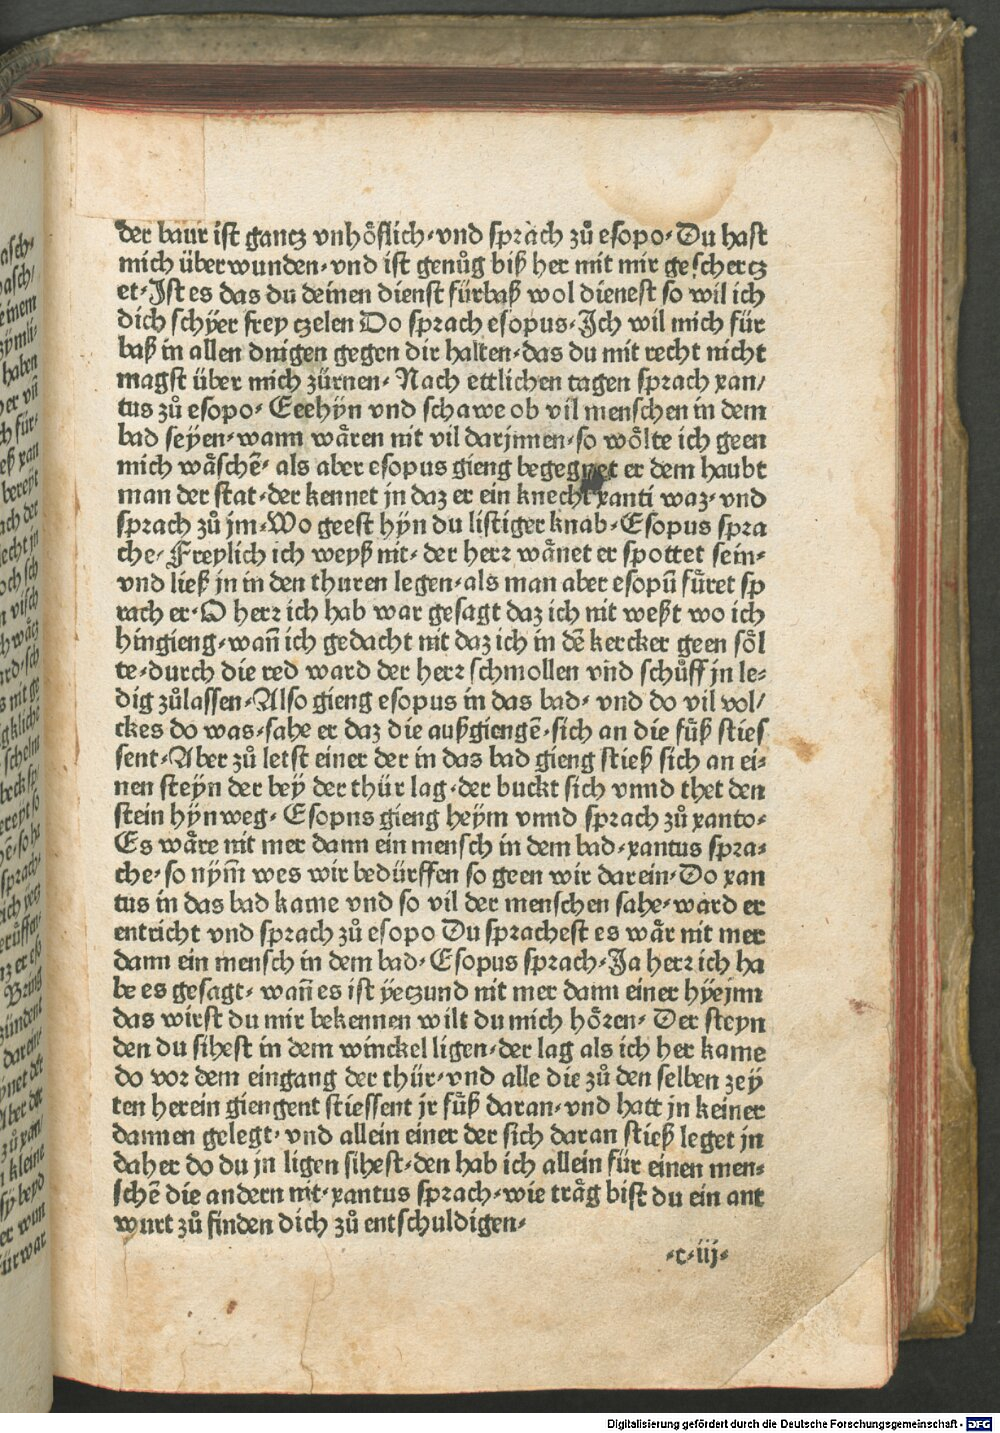 der baur ist gancz vnhöflich·vnd sprach zů esopo·Du hast
mich überwunden·vnd ist genůg biß her mit mir geschercz
et·Ist es das du deinen dienst fürbaß wol dienest so wil ich
dich schÿer frey czelen Do sprach esopus·Ich wil mich für
baß in allen dnigen gegen dir halten·das du mit recht nicht
magst über mich zürnen·Nach ettlichen tagen sprach xan/
tus zů esopo·Eeehÿn vnd schawe ob vil menschen in dem
bad seÿen·wann wären nit vil darjnnen·so wölte ich geen
mich wäschē·als aber esopus gieng begegnet er dem haubt
man der stat·der kennet jn daz er ein knecht xanti waz·vnd
sprach zů jm·Wo geest hÿn du listiger knab·Esopus spra
che·Freylich ich weyß nit·der herr wänet er spottet sein·
vnd ließ jn in den thuren legen·als man aber esopū füret sp
rach er·O herr ich hab war gesagt daz ich nit weßt wo ich
hingieng·wañ ich gedacht nit daz ich in dē kercker geen söl
te·durch die red ward der herr schmollen vnd schůff jn le-
dig zůlassen·Also gieng esopus in das bad·vnd do vil vol/
ckes do was·sahe er daz die außgiengē·sich an die füß sties
sent·Aber zů letst einer der in das bad gieng stieß sich an ei-
nen steyn der bey der thür lag·der buckt sich vnnd thet den
stein hÿnweg·Esopus gieng heÿm vnnd sprach zů xanto·
Es wäre nit mer dann ein mensch in dem bad·xantus spra-
che·so nÿm̄ wes wir bedürffen so geen wir darein·Do xan
tus in das bad kame vnd so vil der menschen sahe·ward er
entricht vnd sprach zů esopo Du sprachest es wär nit mer
dann ein mensch in dem bad·Esopus sprach·Ja herr ich ha
be es gesagt·wañ es ist ÿeczund nit mer dann einer hÿejnn
das wirst du mir bekennen wilt du mich hören·Der steyn
den du sihest in dem winckel ligen·der lag als ich her kame
do vor dem eingang der thür·vnd alle die zů den selben zeÿ
ten herein giengent stiessent jr füß daran·vnd hatt jn keiner
dannen gelegt·vnd allein einer der sich daran stieß leget jn
daher do du jn ligen sihest·den hab ich allein für einen men-
schē die andern nit·xantus sprach·wie träg bist du ein ant
wurt zů finden dich zů entschuldigen·
·c·iij·
Digitalisierung gefördert durch die Deutsche Forschungsgemeinschaft - DFG